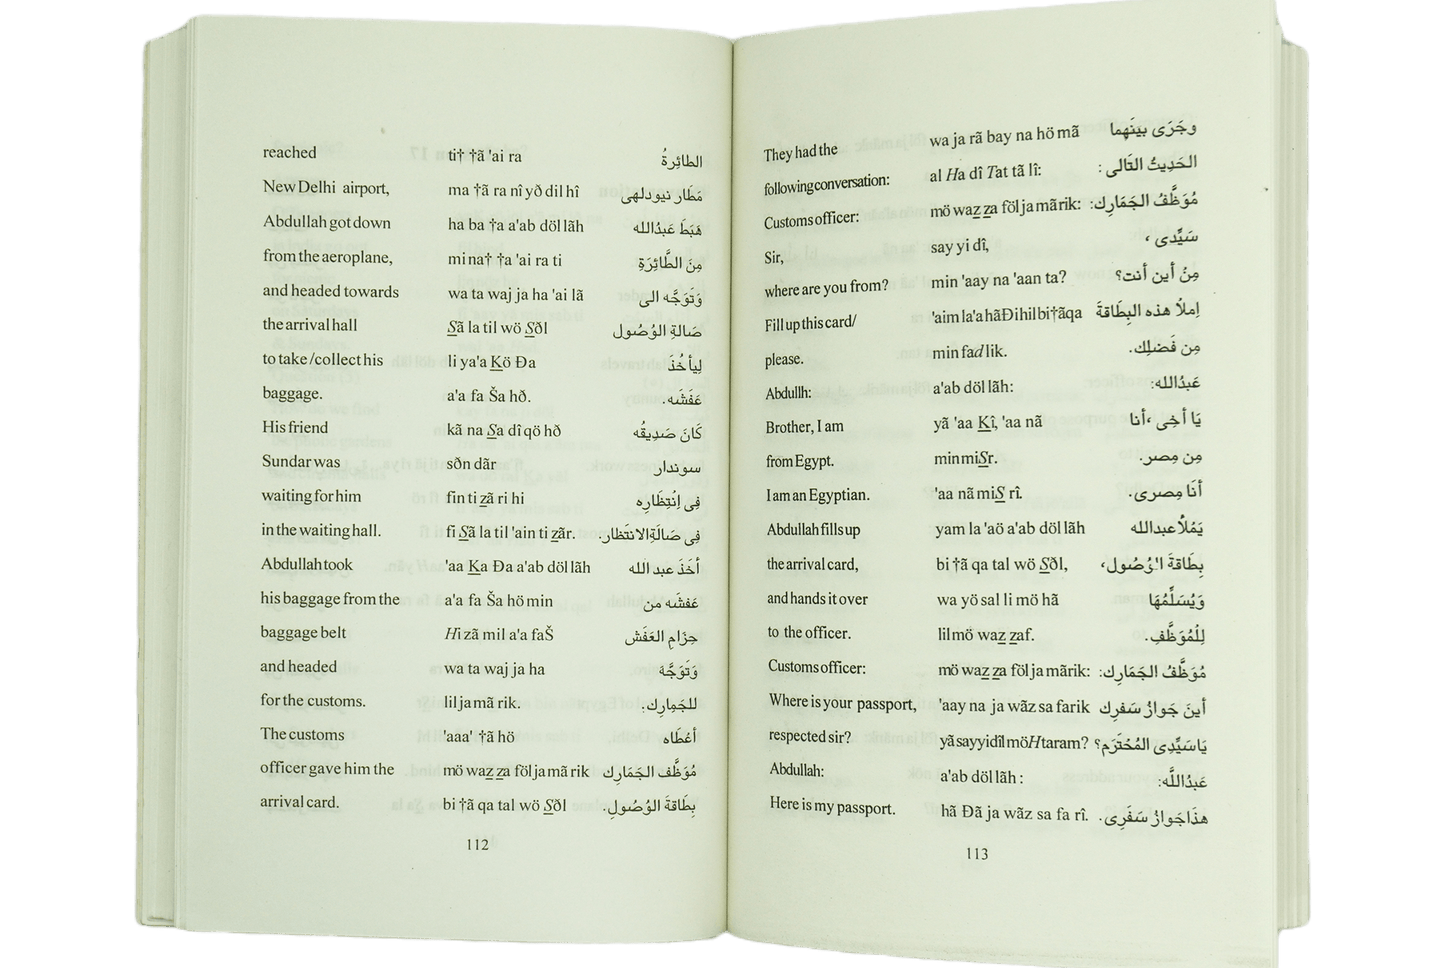 reached ti† †ã 'ai ra الطائِرةُ
New Delhi airport, ma †ã ra nî yð dil hî مَطَار نيودلهى
Abdullah got down ha ba †a a'ab döl lãh هَبَطَ عَبدُالله
from the aeroplane, mi na† †a 'ai ra ti مِنَ الطَّائِرَةِ
and headed towards wa ta waj ja ha 'ai lã وَتَوَجَّه الى
the arrival hall Sã la til wö Sðl صَالةِ الوُصُول
to take /collect his li ya'a Kö Ða لِيأخُذَ
baggage. a'a fa Ša hð. عَفَشَه.
His friend kã na Sa dî qö hð كَانَ صَدِيقُه
Sundar was sðn dãr سوندار
waiting for him fin ti zã ri hi فِى اِنْتِظَارِه
in the waiting hall. fî Sã la til 'ain ti zãr. فِى صَالَةِالانتَظار.
Abdullah took 'aa Ka Ða a'ab döl lãh أخَذَ عبد الله
his baggage from the a'a fa Ša hö min عَفشَه من
baggage belt Hi zã mil a'a faŠ حِزَامِ العَفَش
and headed wa ta waj ja ha وَتَوَجَّهَ
for the customs. lil ja mã rik. للجَمِارِك.
The customs 'aaa' †ã hö أعْطَاه
officer gave him the mö waz za föl ja mã rik مُوَظَّف الجَمَارِك
arrival card. bi †ã qa tal wö Sðl بِطَاقَةَ الوُصُولِ.
112
They had the wa ja rã bay na hö mã وجَرَى بينَهما
following conversation: al Ha dî Tat tã lî: الحَدِيثُ التَالى :
Customs officer: mö waz za föl ja mã rik: مُوَظَّفُ الجَمَارِك:
Sir, say yi dî, سَيِّدى ،
where are you from? min 'aay na 'aan ta? مِنْ أين أنت؟
Fill up this card/ 'aim la'a hã Ði hil bi †ãqa اِملأ هذه البِطَاقَةَ
please. min fad lik. مِن فَضلِك.
Abdullh: a'ab döl lãh: عَبدُالله:
Brother, I am yã 'aa Kî, 'aa nã يَا أخِى ،أنا
from Egypt. min miSr. مِن مِصر.
I am an Egyptian. 'aa nã miS rî. أنَا مِصرى.
Abdullah fills up yam la 'aö a'ab döl lãh يَمْلأعبدالله
the arrival card, bi †ã qa tal wö Sðl, بِطَاقةَ الوُصُول،
and hands it over wa yö sal li mö hã وَيُسَلِّمُهَا
to the officer. lil mö waz zaf. لِلْمُوَظَّفِ.
Customs officer: mö waz za föl ja mãrik: مُوَظَّفُ الجَمَارِك:
Where is your passport, 'aay na ja wãz sa farik أينَ جَوازُ سَفرِك
respected sir? yã sayyidîl möHtaram? يَاسَيِّدِى المُحْتَرَم؟
Abdullah: a'ab döl lãh : عَبدُاللَّه:
Here is my passport. hã Ðã ja wãz sa fa rî. هذَاجَوازُ سَفَرِى.
113